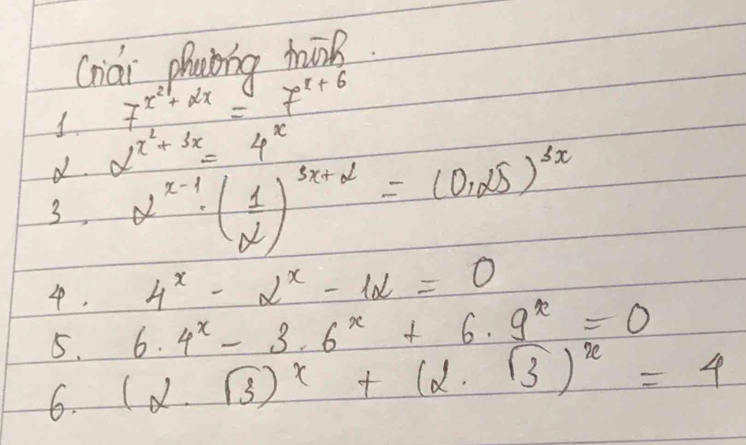 Giải phương trình.
1. 7^{x^2 + 2x} = 7^{x + 6}
2. 2^{x^2 + 3x} = 4^x
3. 2^{x - 1} . (1/2)^{3x + 2} = (0,25)^{3x}
4. 4^x - 2^x - 12 = 0
5. 6 . 4^x - 3 . 6^x + 6 . 9^x = 0
6. (2 . √3)^x + (2 . √3)^x = 4